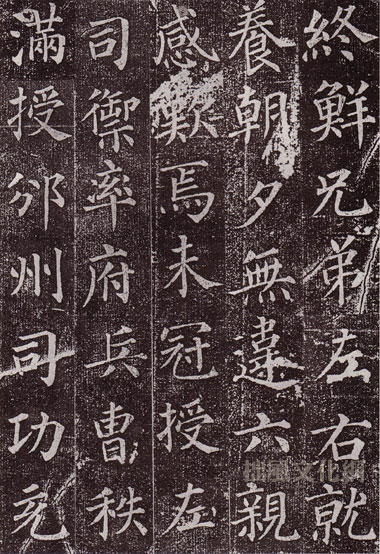 終鮮兄弟左右就
養朝夕無違六親
感歎焉未冠授左
司禦率府兵曹秩
滿授邠州司功充
文化網